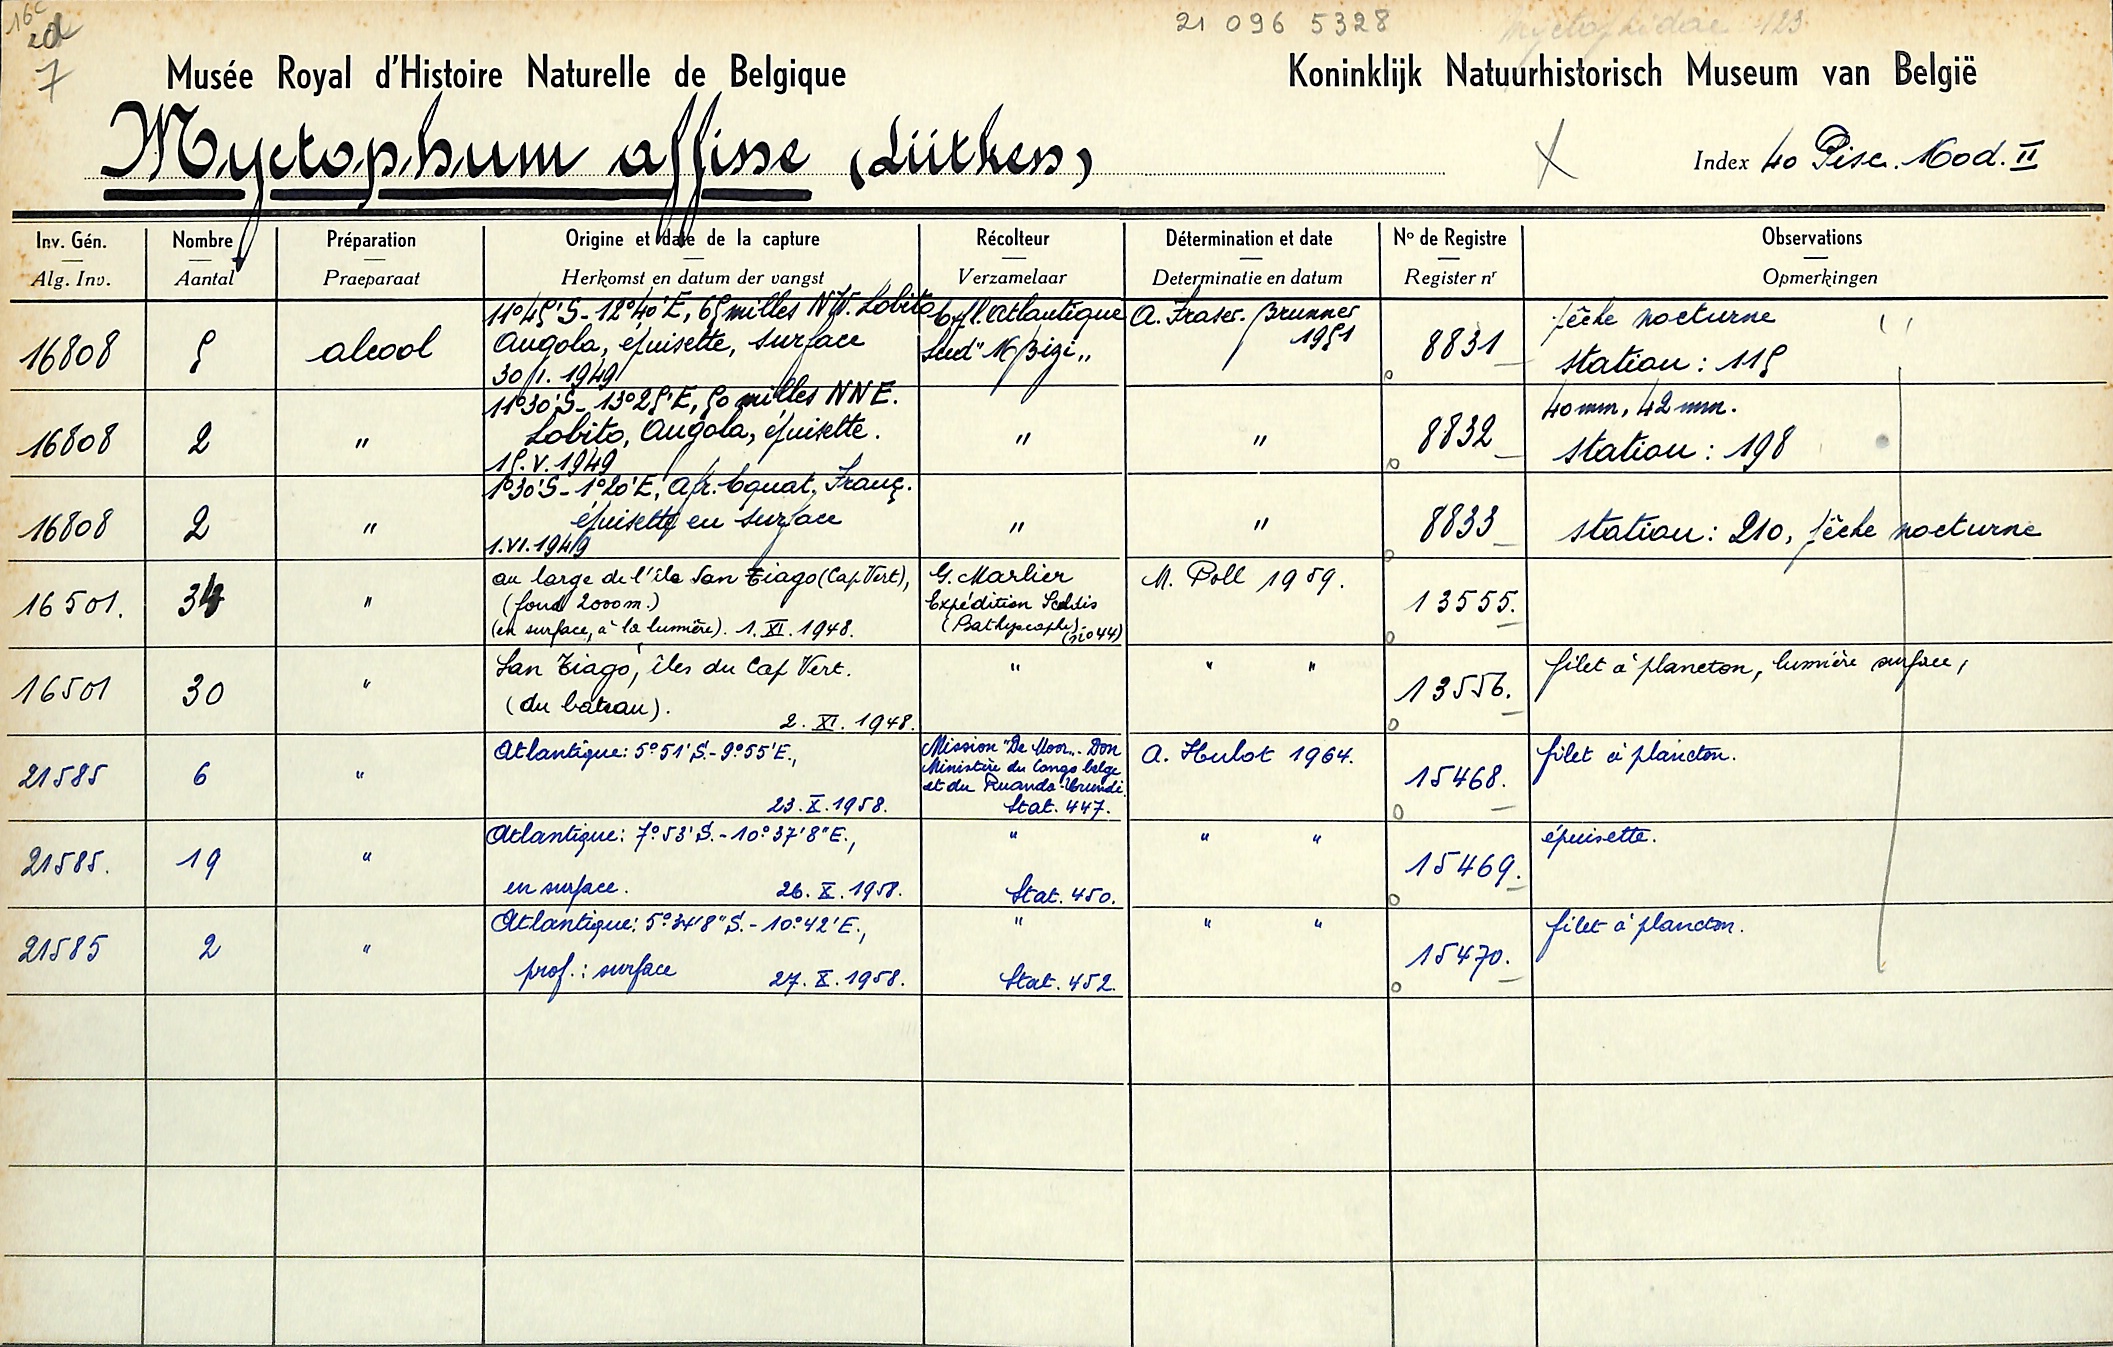 16c
2d
7
21 096 5328
Myctophidae 123
Musée Royal d'Histoire Naturelle de Belgique
Koninklijk Natuurhistorisch Museum van België
Myctophum affine (Lütken)
X
Index 40 Pisc. Mod. II
Inv. Gén. Nombre Préparation Origine et date de la capture Récolteur Détermination et date No de Registre Observations
Alg. Inv. Aantal Praeparaat Herkomst en datum der vangst Verzamelaar Determinatie en datum Register nr Opmerkingen
16808 5 alcool
11°45'S - 12°40'E, 65 milles NW. Lobito
Angola, épuisette, surface
30.I.1949
Exp. Atlantique
Sud "M'Bizi"
A. Fraser-Brunner
1951
8831
pêche nocturne
station : 115
16808 2 "
11°30'S - 13°25'E, 50 milles NNE.
Lobito, Angola, épuisette.
15.V.1949
" " 8832
40mm, 42mm.
station : 198
16808 2 "
1°30'S - 1°20'E, Afr. Equat. Franç.
épuisette en surface
1.VI.1949
" " 8833
station : 210, pêche nocturne
16501. 34 "
au large de l'île San Tiago (Cap Vert),
(fond 2000m.)
(en surface, à la lumière). 1.XI.1948.
G. Marlier
Expédition Scaldis
(Bathyscaphe).
(no 44)
M. Poll 1959.
13555.
16501 30 "
San Tiago, îles du Cap Vert.
(du bateau).
2.XI.1948.
" " "
13556.
filet à plancton, lumière surface,
21585 6 "
Atlantique: 5°51'S. - 9°55'E.,
23.X.1958.
Mission "De Moor". Don
Ministère du Congo belge
et du Ruanda-Urundi.
Stat. 447.
A. Hulot 1964.
15468.
filet à plancton.
21585. 19 "
Atlantique: 7°53'S. - 10°37'8"E.,
en surface. 26.X.1958.
"
Stat. 450.
" "
15469.
épuisette.
21585 2 "
Atlantique: 5°34'8"S. - 10°42'E.,
prof.: surface 27.X.1958.
"
Stat. 452.
" "
15470.
filet à plancton.